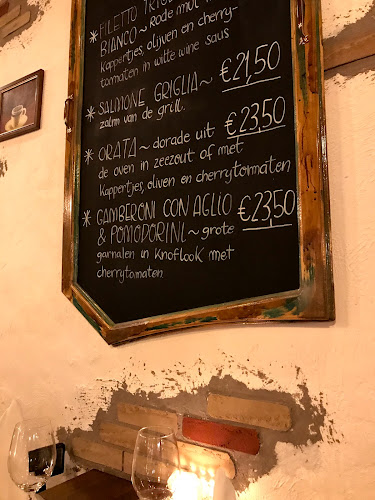 * FILETTO TRIGL
BIANCO ~ Rode mul
Kappertjes, olijven en cherry-
tomaten in witte wine saus
€21,50
* SALMONE GRIGLIA ~
zalm van de grill.
€23,50
* ORATA ~ dorade uit
de oven in zeezout of met
Kappertjes, oliven en cherrytomaten
* GAMBERONI CON AGLIO €23,50
& POMODORINI ~ grote
garnalen in Knoflook met
cherrytomaten